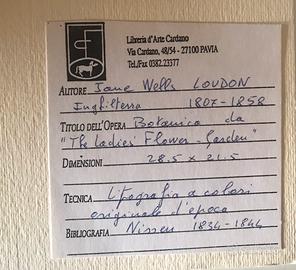 Libreria d'Arte Cardano
Via Cardano, 48/54 - 27100 PAVIA
Tel./Fax 0382.23377
AUTORE Jane Wells LOUDON
Inghilterra 1807-1858
TITOLO DELL'OPERA Botanica da
"The Ladies' Flower-Garden"
DIMENSIONI 28.5 x 21.5
TECNICA Litografia a colori
originale d'epoca
BIBLIOGRAFIA Nissen 1834-1844